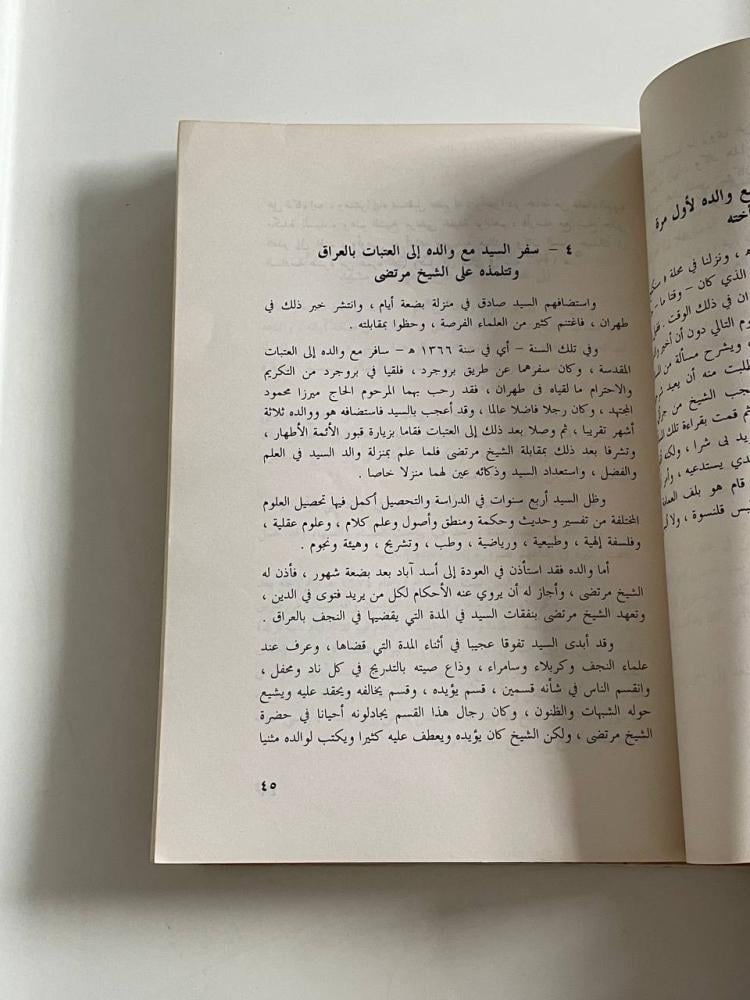 ٤ – سفر السيد مع والده إلى العتبات بالعراق
وتتلمذه على الشيخ مرتضى
واستضافهم السيد صادق في منزلة بضعة أيام ، وانتشر خبر ذلك في
طهران ، فاغتنم كثير من العلماء الفرصة ، وحظوا بمقابلته .
وفي تلك السنة – أي في سنة ١٣٦٦ ه – سافر مع والده إلى العتبات
المقدسة ، وكان سفرهما عن طريق بروجرد ، فلقيا في بروجرد من التكريم
والاحترام ما لقياه فى طهران ، فقد رحب بهما المرحوم الحاج ميرزا محمود
المجتهد ، وكان رجلا فاضلا عالما ، وقد أعجب بالسيد فاستضافه هو ووالده ثلاثة
أشهر تقريبا ، ثم وصلا بعد ذلك إلى العتبات فقاما بزيارة قبور الأئمة الأطهار ،
وتشرفا بعد ذلك بمقابلة الشيخ مرتضى فلما علم بمنزلة والد السيد في العلم
والفضل ، واستعداد السيد وذكائه عين لهما منزلا خاصا .
وظل السيد أربع سنوات في الدراسة والتحصيل أكمل فيها تحصيل العلوم
المختلفة من تفسير وحديث وحكمة ومنطق وأصول وعلم كلام ، وعلوم عقلية ،
وفلسفة إلهية ، وطبيعية ، ورياضية ، وطب ، وتشريح ، وهيئة ونجوم .
أما والده فقد استأذن في العودة إلى أسد آباد بعد بضعة شهور ، فأذن له
الشيخ مرتضى ، وأجاز له أن يروي عنه الأحكام لكل من يريد فتوى في الدين ،
وتعهد الشيخ مرتضى بنفقات السيد في المدة التي يقضيها في النجف بالعراق .
وقد أبدى السيد تفوقا عجيبا في أثناء المدة التي قضاها ، وعرف عند
علماء النجف وكربلاء وسامراء ، وذاع صيته بالتدريج في كل ناد ومحفل ،
وانقسم الناس في شأنه قسمين ، قسم يؤيده ، وقسم يخالفه ويحقد عليه ويشيع
حوله الشبهات والظنون ، وكان رجال هذا القسم يجادلونه أحيانا في حضرة
الشيخ مرتضى ، ولكن الشيخ كان يؤيده ويعطف عليه كثيرا ويكتب لوالده مثنيا
٤٥
ع والده لأول مرة
أخته
ه ، ونزلنا في محلة
الذي كان – وقتا ما –
ان في ذلك الوقت .
وم التالي دون أن أخبر
، ويشرح مسألة من
طلبت منه أن يعيد
عجب الشيخ من
ثم قمت بقراءة تلك
يد بى شرا ، ولكنه
دي يستدعيه ،
قام هو بلف العمامة
بس قلنسوة ،